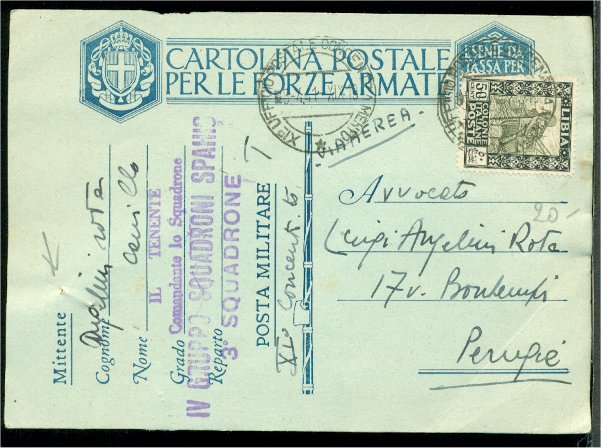 CARTOLINA POSTALE
PER LE FORZE ARMATE
ESENTE DA
TASSA PER
LIBIA
COLONIE ITALIANE
POSTE
50
VIA AEREA
Avvocato
Luigi Angelini Rota
17 v. Bontempi
Perugia
20-
Mittente
Cognome Angelini Rota
Nome Camillo
Grado
Reparto
IL TENENTE
Comandante lo Squadrone
IV GRUPPO SQUADRONI SPAHIS
3° SQUADRONE
POSTA MILITARE
XI°